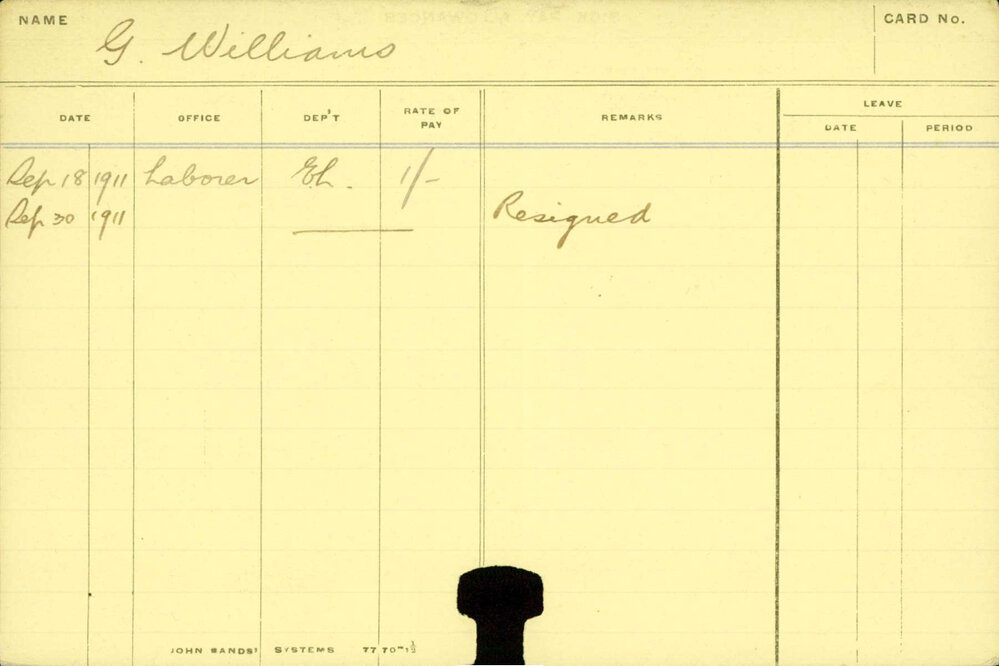 NAME G. Williams CARD No.
DATE OFFICE DEP'T RATE OF PAY REMARKS LEAVE
DATE PERIOD
Sep 18 1911 Laborer Eh. 1/-
Sep 30 1911 Resigned
JOHN SANDS' SYSTEMS